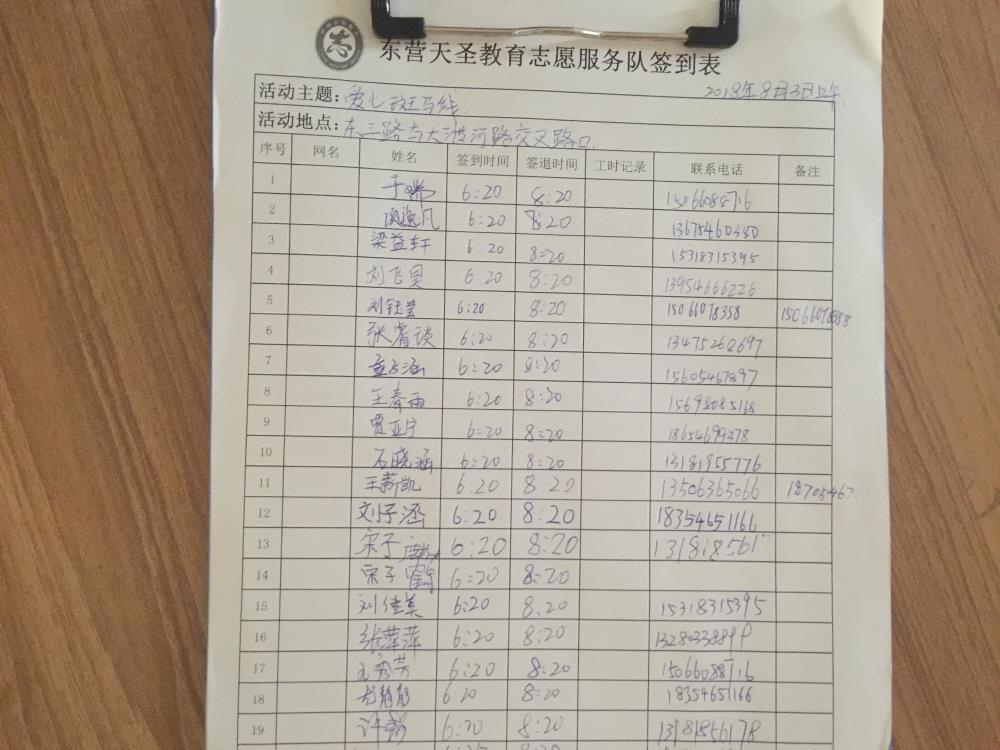 志
东营天圣教育志愿服务队签到表
2018年8月3日上午
活动主题:爱心斑马线
活动地点:东三路与大渡河路交叉路口
序号 网名 姓名 签到时间 签退时间 工时记录 联系电话 备注
1 于瑞 6:20 8:20 15066088716
2 逸凡 6:20 8:20 13675460380
3 梁益轩 6:20 8:20 15318315395
4 刘飞昊 6:20 8:20 13954666226
5 刘钰莹 6:20 8:20 15066078358 15066078358
6 张睿谈 6:20 8:20 13475268697
7 6:20 8:20 15605467897
8 王春雨 6:20 8:20 15698085168
9 贾亚宁 6:20 8:20 18654699378
10 石晓涵 6:20 8:20 13181955776
11 王新凯 6:20 8:20 13506365066 18705467
12 刘子涵 6:20 8:20 18354651166
13 宋子 6:20 8:20
14 宋子 6:20 8:20
15 刘佳美 6:20 8:20 15318315395
16 张萍萍 6:20 8:20
17 秀芳 6:20 8:20 15066088716
18 静静 6:20 8:20 18354651166
19 许 6:20 8:20 13181856178
6:25 8:20